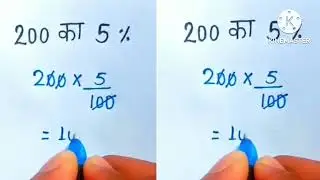 200 का 5 %
200 × 5/100
= 10
200 का 5 %
200 × 5/100
= 10
KINEMASTER